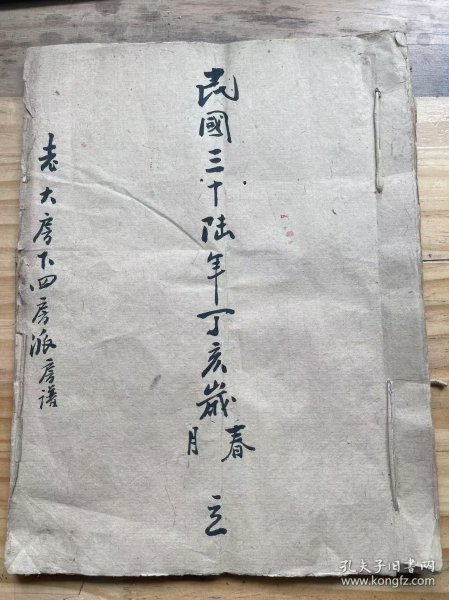 民國三十陆年丁亥歲春月 立
老大房下四房派房譜
孔夫子旧书网
www.kongfz.com